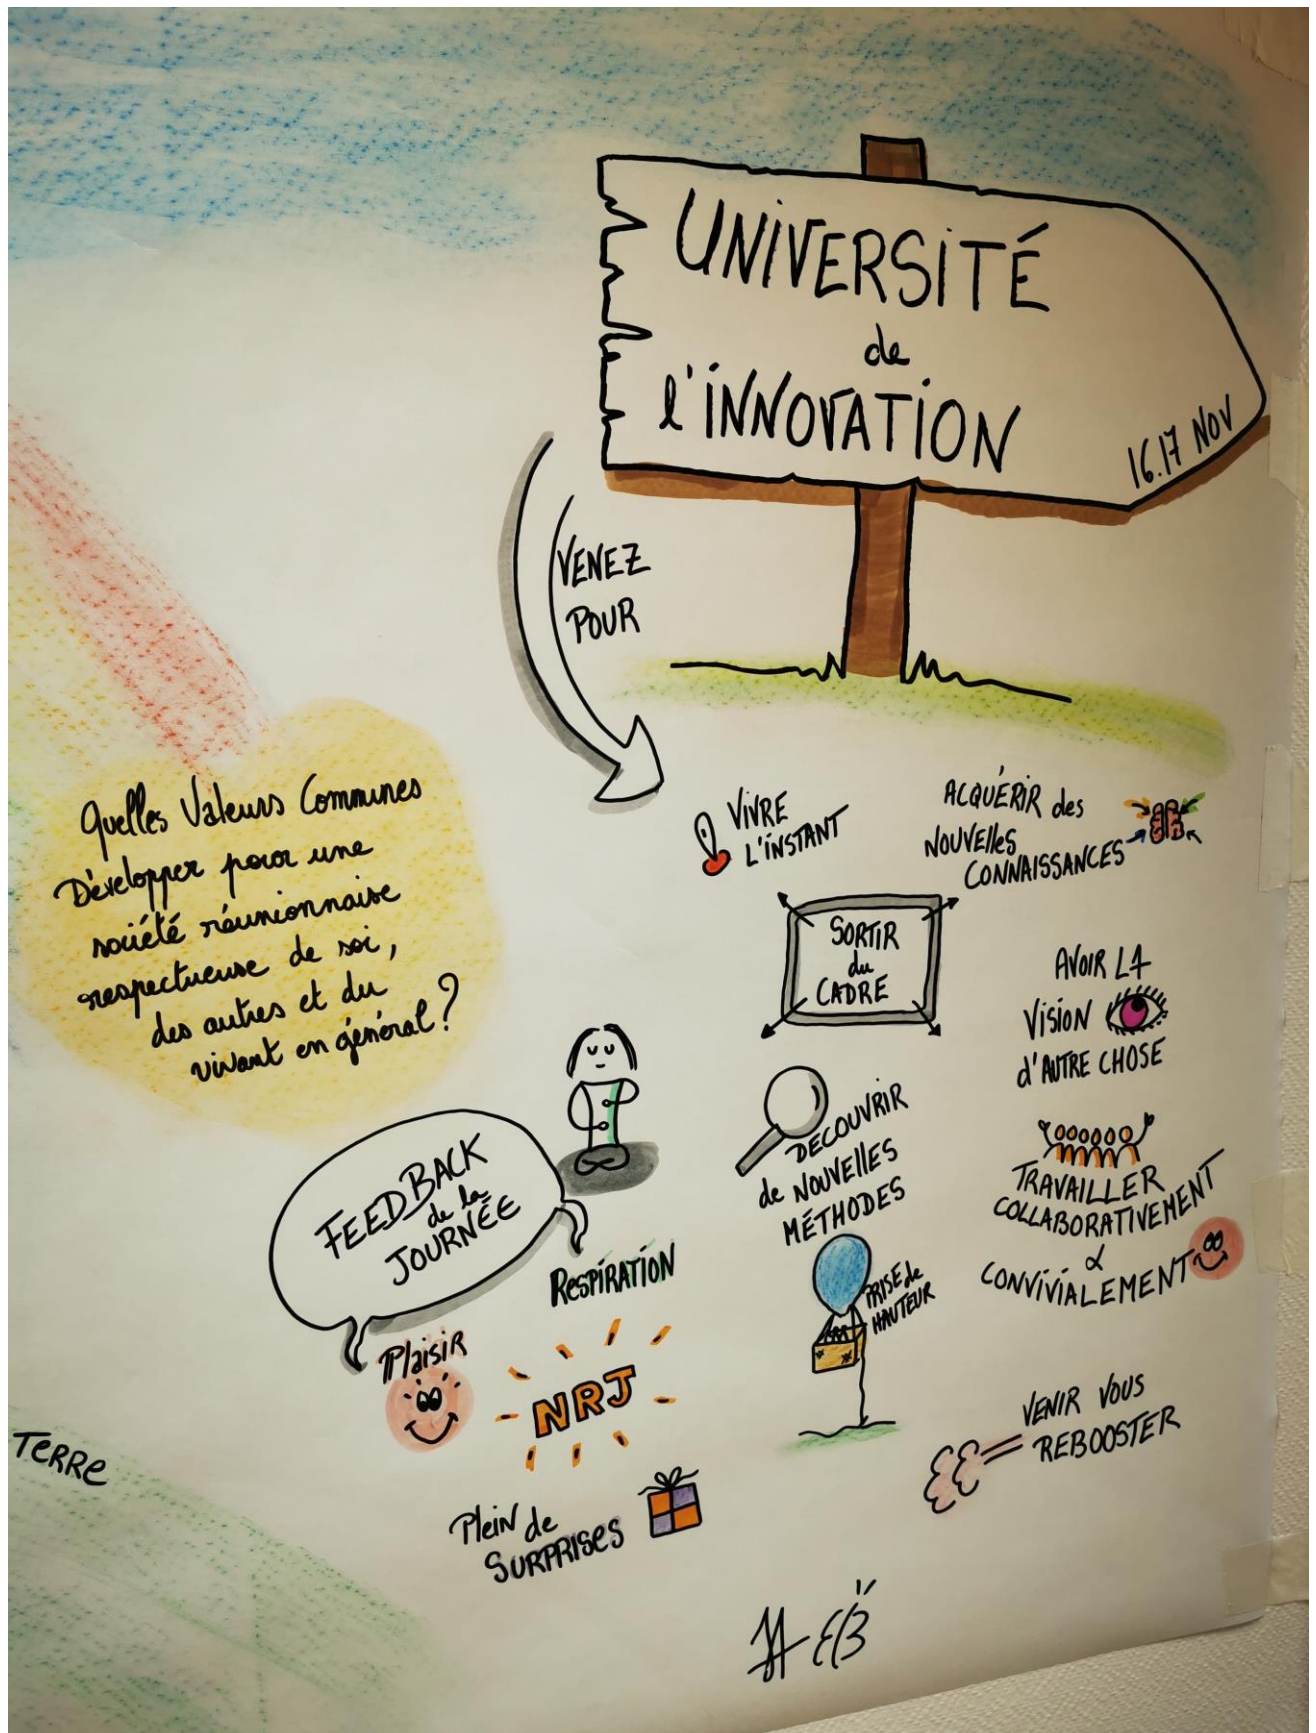 UNIVERSITÉ
de
l'INNOVATION
16.17 NOV
VENEZ
POUR
Quelles Valeurs Communes
Développer pour une
société réunionnaise
respectueuse de soi,
des autres et du
vivant en général ?
VIVRE
L'INSTANT
ACQUÉRIR des
NOUVElles
CONNAISSANCES
SORTIR
du
CADRE
AVOIR LA
VISION
d'AUTRE CHOSE
DECOUVRIR
de NOUVElles
MÉTHODES
TRAVAILLER
COLLABORATIVEMENT
&
CONVIVIALEMENT
PRISE de
HAUTEUR
VENIR VOUS
REBOOSTER
FEEDBACK
de la
JOURNÉE
RESPIRATION
Plaisir
NRJ
Plein de
SURPRISES
TERRe